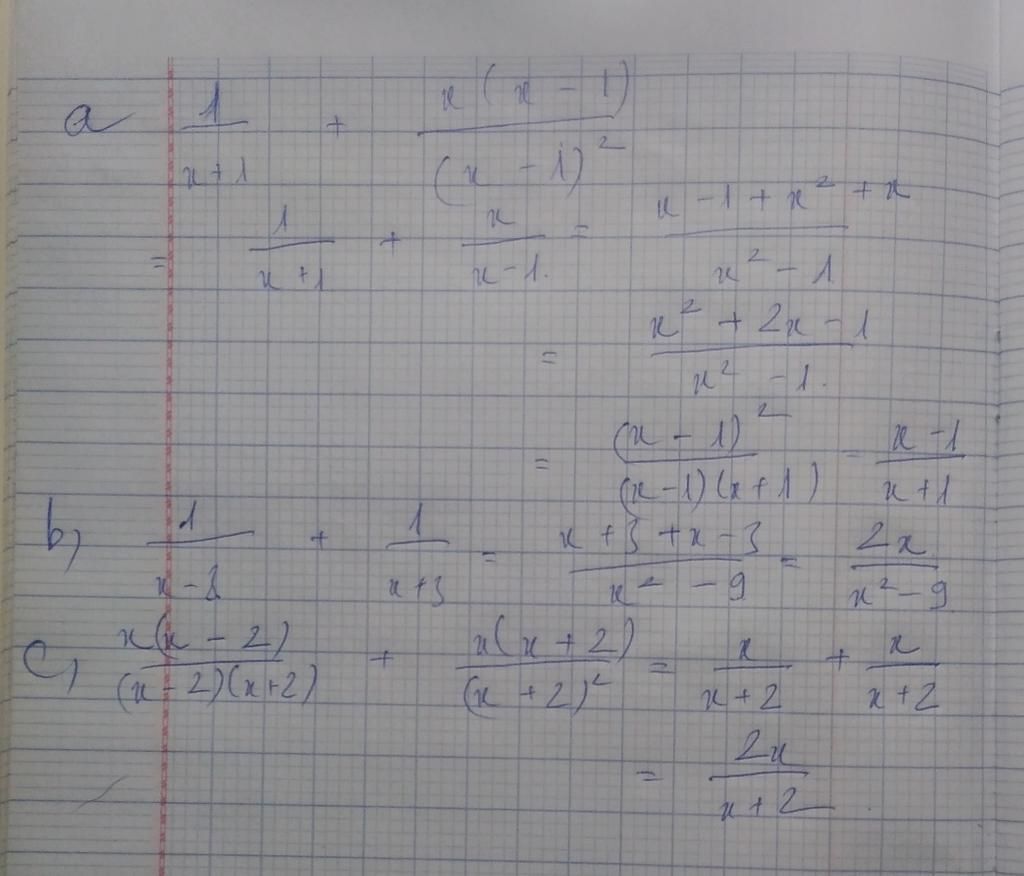 a 1/(x+1) + x(x - 1)/(x - 1)²
= 1/(x+1) + x/(x-1) = (x - 1 + x² + x)/(x² - 1)
= (x² + 2x - 1)/(x² - 1)
= (x - 1)²/((x-1)(x+1)) = (x-1)/(x+1)
b) 1/(x-3) + 1/(x+3) = (x + 3 + x - 3)/(x² - 9) = 2x/(x² - 9)
c) x(x - 2)/((x - 2)(x+2)) + x(x + 2)/(x + 2)² = x/(x+2) + x/(x+2)
= 2x/(x+2)